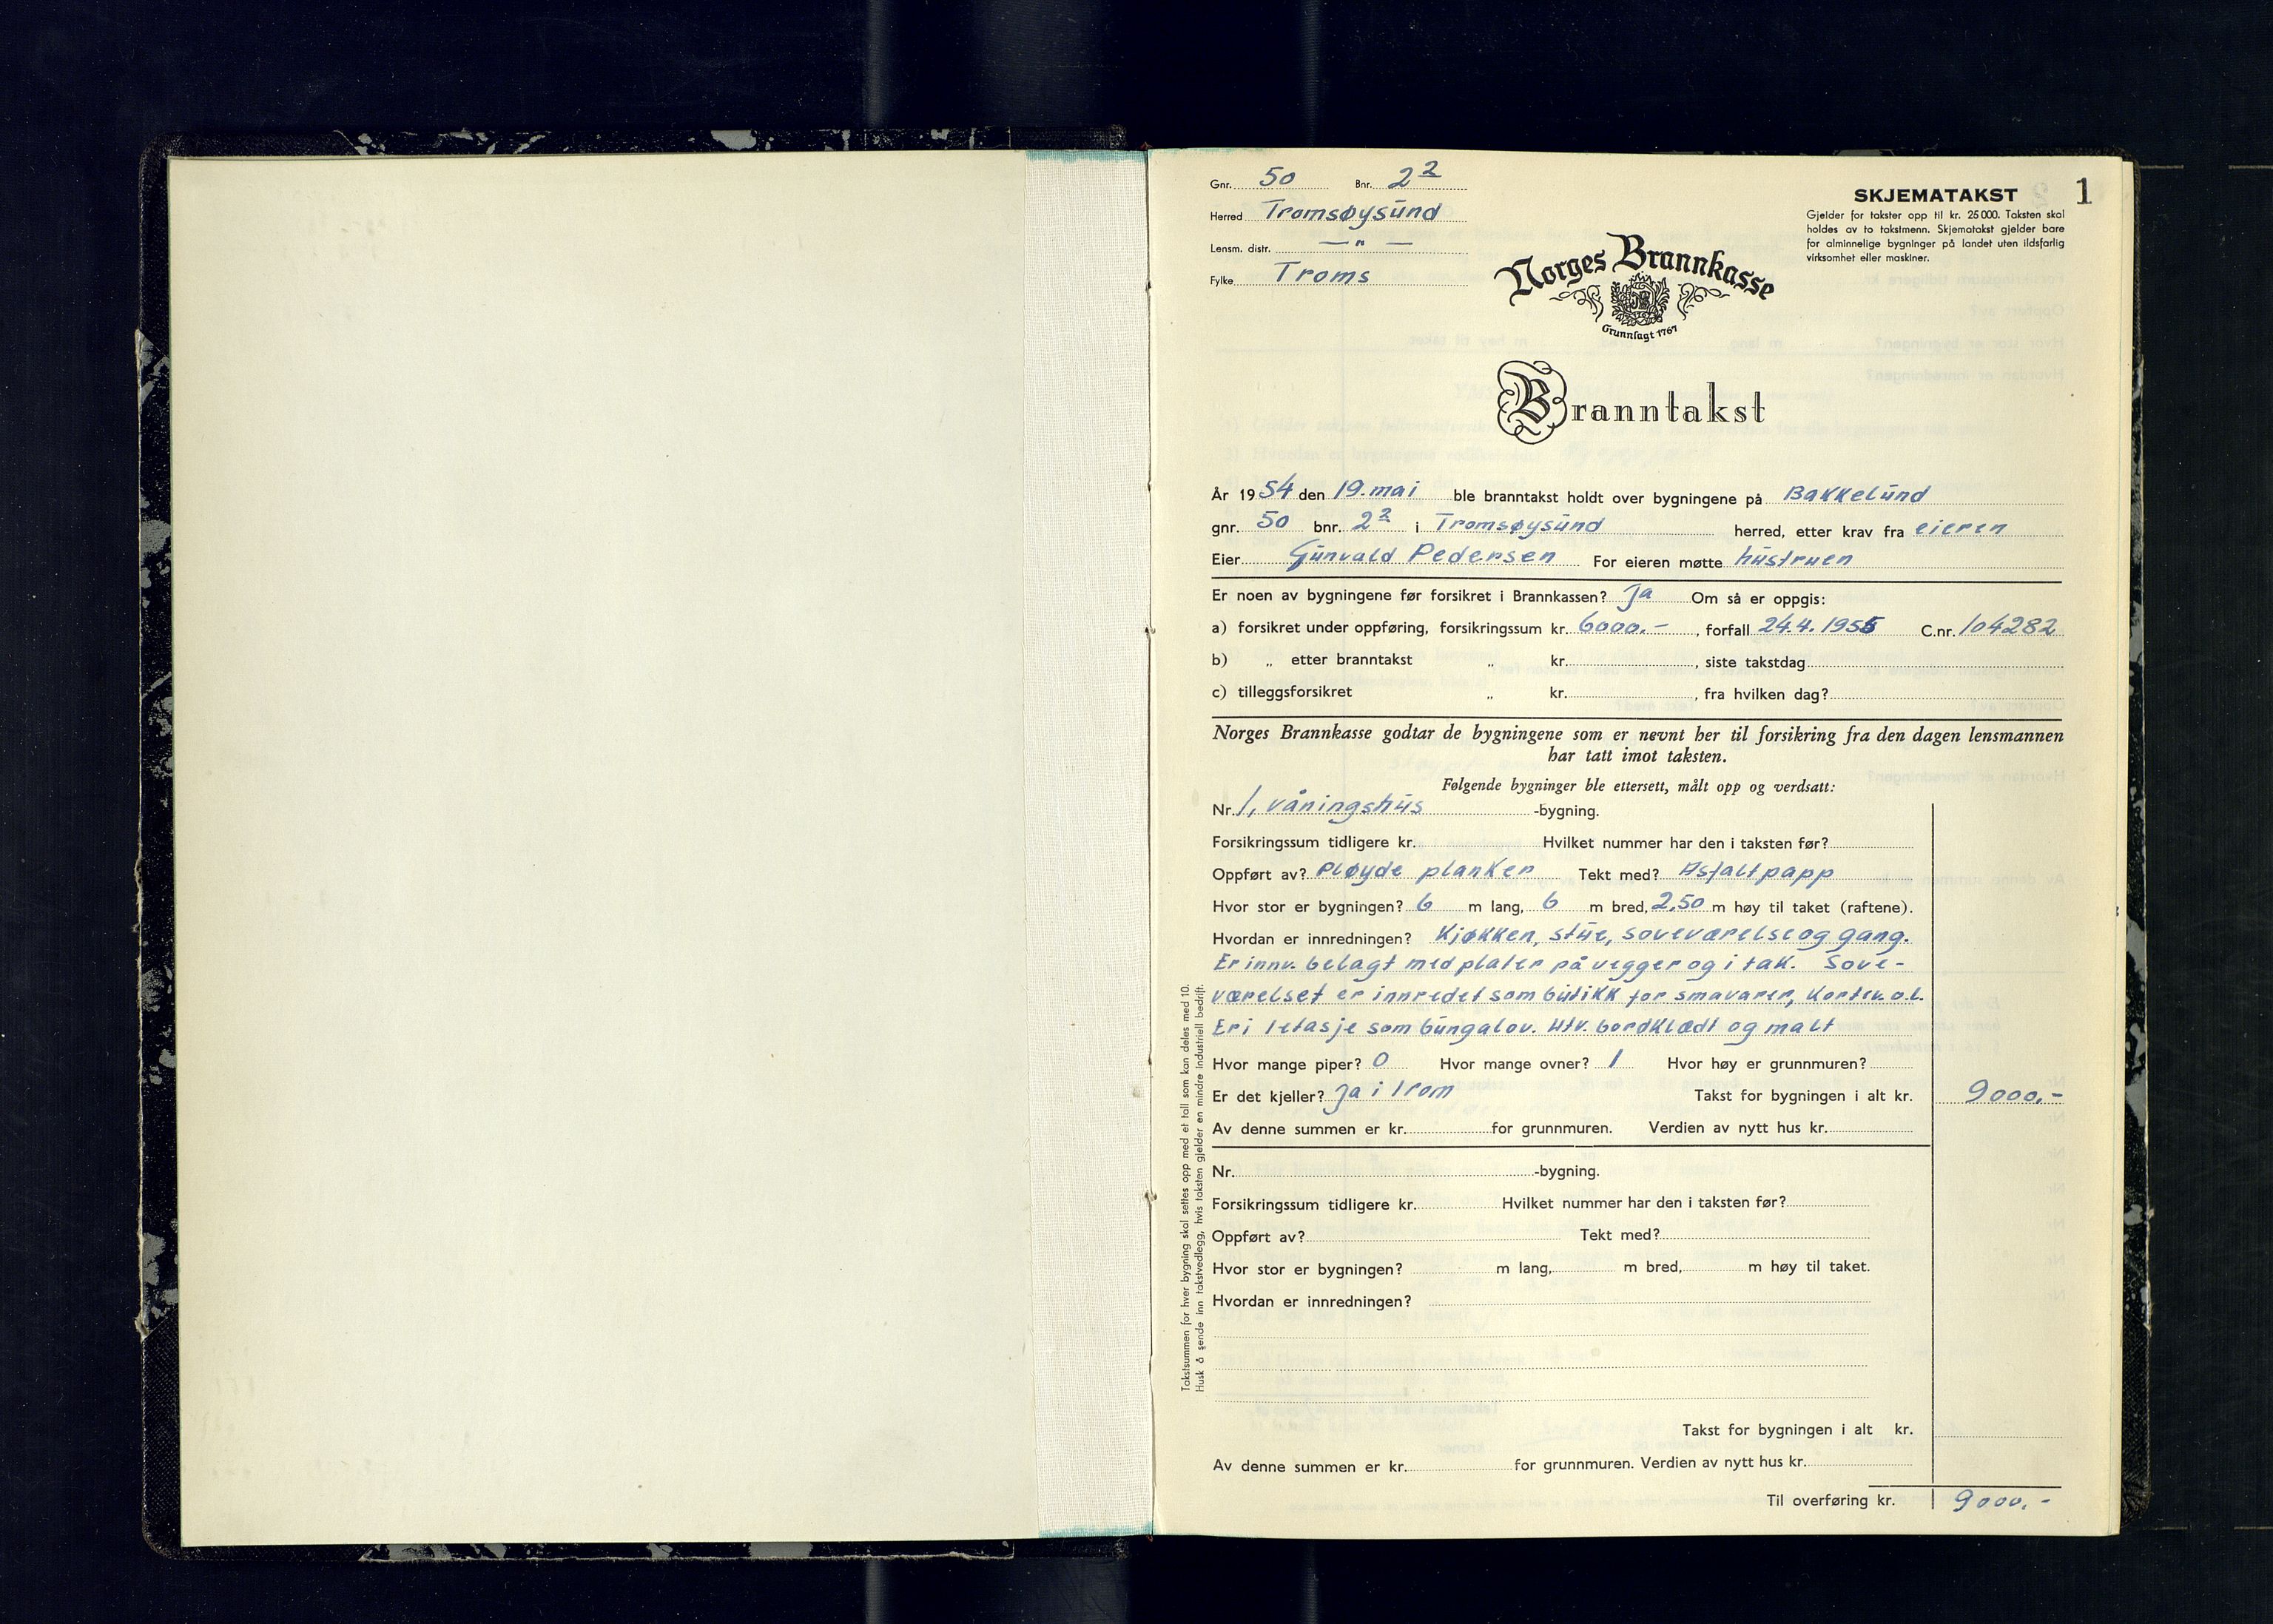 Gnr. 50 Bnr. 2²
SKJEMATAKST 1
Herred Tromsøysund
Gjelder for takster opp til kr. 25 000. Taksten skal
holdes av to takstmenn. Skjematakst gjelder bare
for alminnelige bygninger på landet uten ildsfarlig
virksomhet eller maskiner.
Lensm. distr. — " —
Fylke Troms
Norges Brannkasse
Grunnlagt 1767
Branntakst
År 1954 den 19. mai ble branntakst holdt over bygningene på Bakkelund
gnr. 50 bnr. 2² i Tromsøysund herred, etter krav fra eieren
Eier Gunvald Pedersen For eieren møtte hustruen
Er noen av bygningene før forsikret i Brannkassen? Ja Om så er oppgis:
a) forsikret under oppføring, forsikringssum kr. 6000.- , forfall 24.4.1955 C.nr. 104282
b) „ etter branntakst „ kr. , siste takstdag
c) tilleggsforsikret „ kr. , fra hvilken dag?
Norges Brannkasse godtar de bygningene som er nevnt her til forsikring fra den dagen lensmannen
har tatt imot taksten.
Følgende bygninger ble ettersett, målt opp og verdsatt:
Nr. 1, våningshus -bygning.
Forsikringssum tidligere kr. Hvilket nummer har den i taksten før?
Oppført av? Pløyde planker Tekt med? Asfaltpapp
Hvor stor er bygningen? 6 m lang, 6 m bred, 2,50 m høy til taket (raftene).
Hvordan er innredningen? Kjøkken, stue, soveværelse og gang.
Er innv. belagt med plater på vegger og i tak. Sove-
værelset er innredet som butikk for smavarer, Korter o.l.
Er i 1 etasje som bungalov. Utv. bordklædt og malt
Hvor mange piper? 0 Hvor mange ovner? 1 Hvor høy er grunnmuren?
Er det kjeller? Ja i 1 rom Takst for bygningen i alt kr. 9000.-
Av denne summen er kr. for grunnmuren. Verdien av nytt hus kr.
Nr. -bygning.
Forsikringssum tidligere kr. Hvilket nummer har den i taksten før?
Oppført av? Tekt med?
Hvor stor er bygningen? m lang, m bred, m høy til taket.
Hvordan er innredningen?
Takst for bygningen i alt kr.
Av denne summen er kr. for grunnmuren. Verdien av nytt hus kr.
Til overføring kr. 9000.-
Takstsummen for hver bygning skal settes opp med et tall som kan deles med 10.
Husk å sende inn takstvedlegg, hvis taksten gjelder en mindre industriell bedrift.